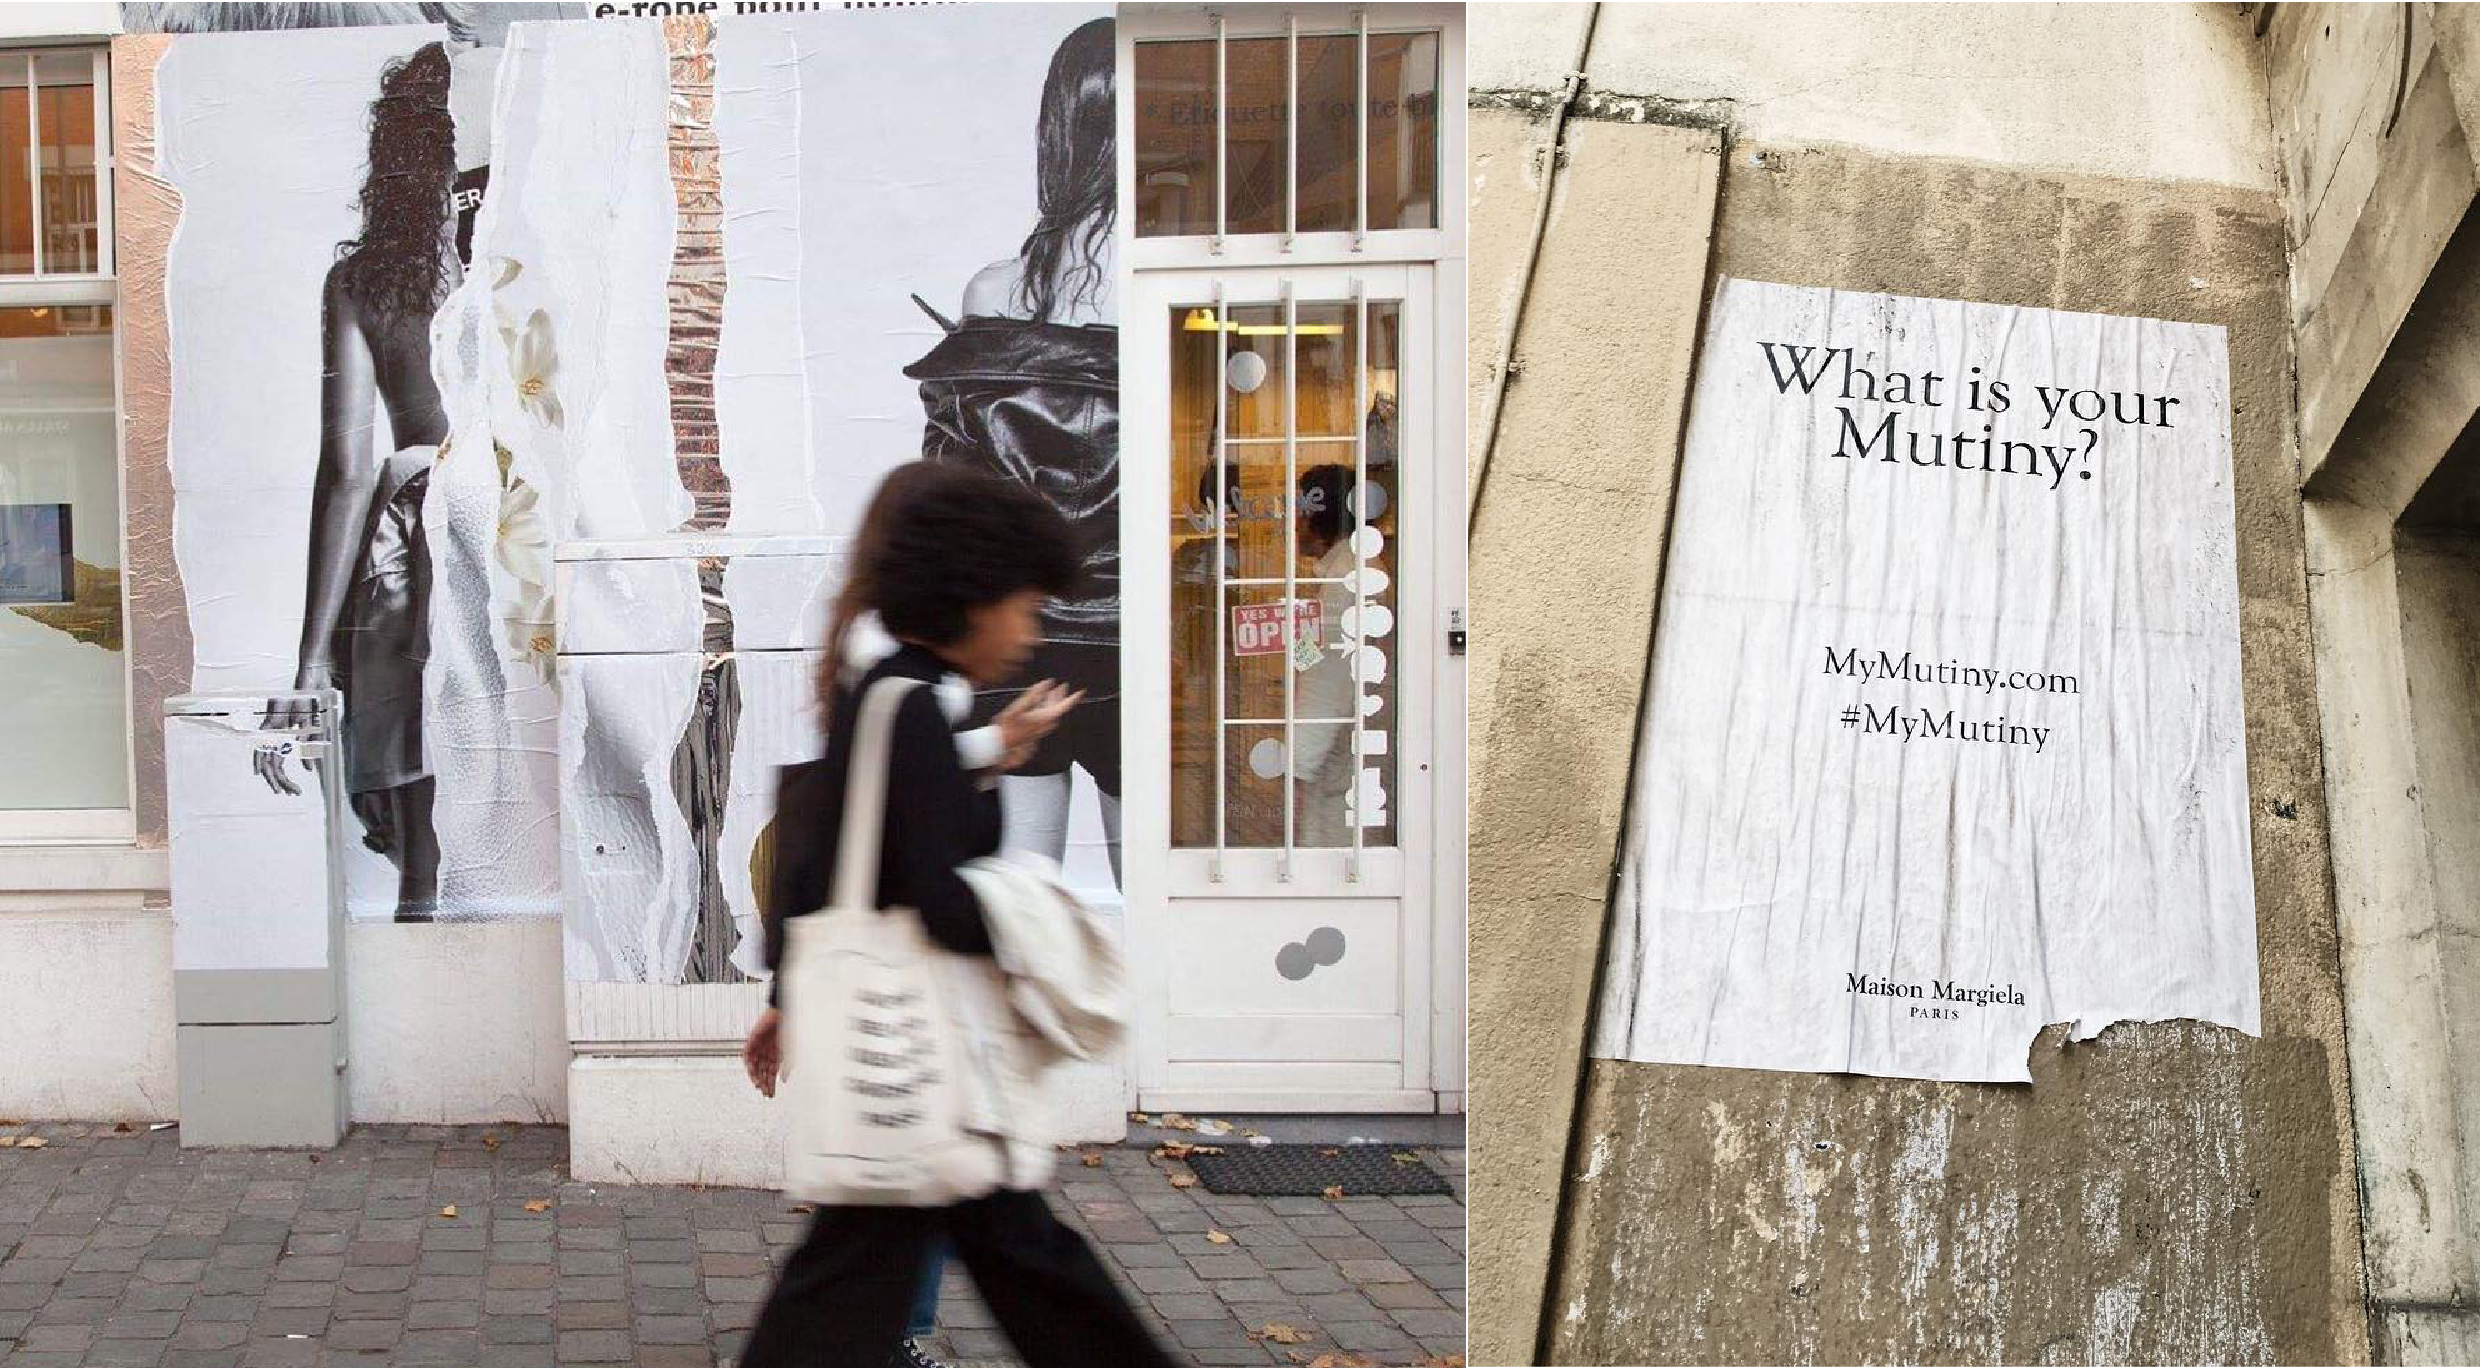 e-robe pour homme
* Etiquette toute bl
ER
Welcome
YES WE'RE
OPEN
What is your
Mutiny?
MyMutiny.com
#MyMutiny
Maison Margiela
PARIS